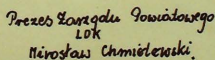 Prezes Zarządu Powiatowego
LDK
Mirosław Chmielewski